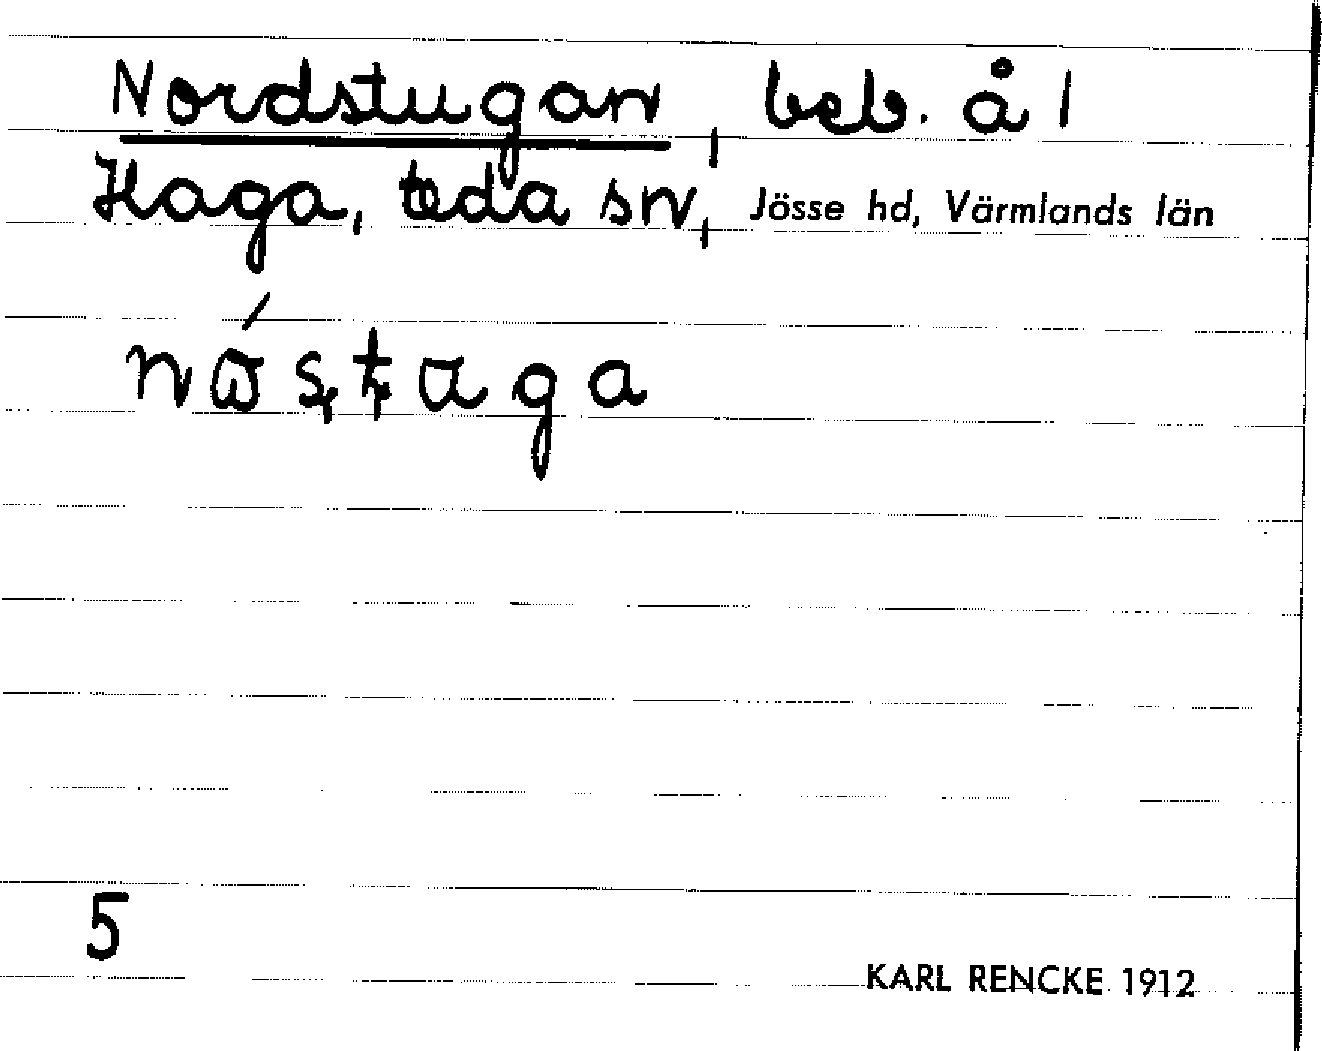 Nordstugan, beb. å 1
Haga, Eda sn, Jösse hd, Värmlands län
5
KARL RENCKE 1912